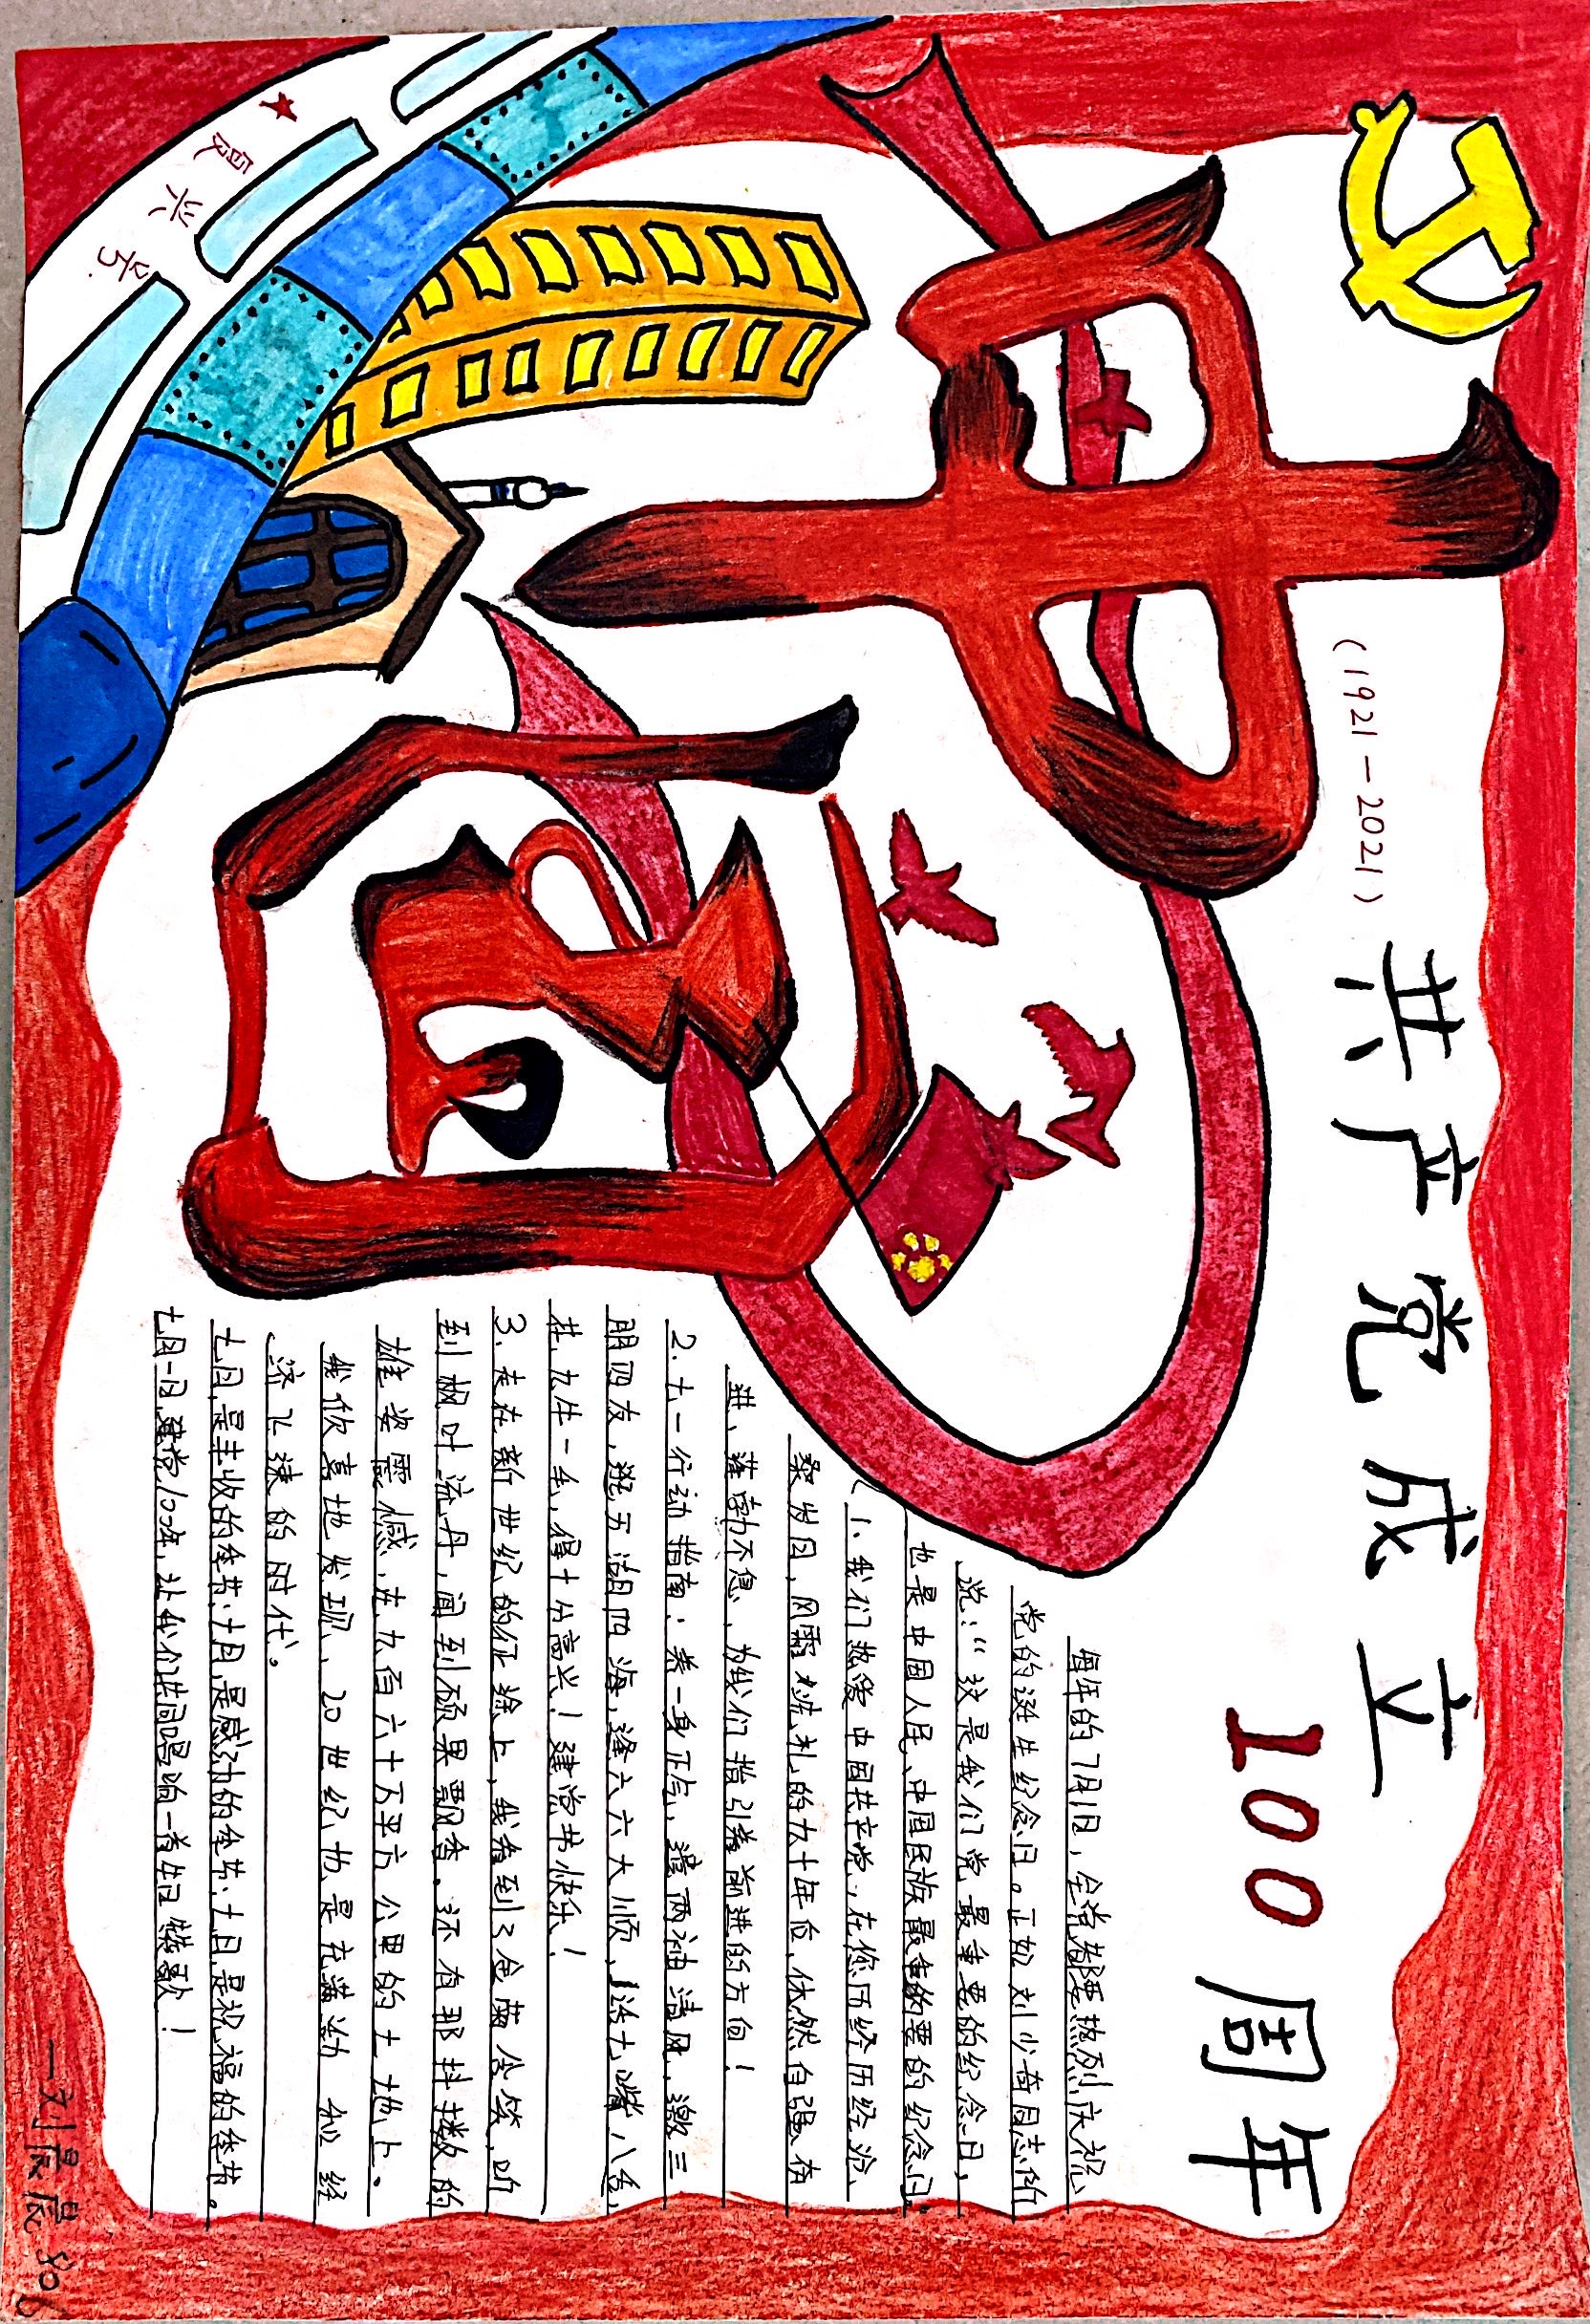 中国
(1921—2021)
共产党成立
100周年
★复兴号
每年的7月1日，全党都要热烈庆祝
党的诞生纪念日。正如刘少奇同志所
说：“这是我们党最重要的纪念日，
也是中国人民、中国民族最重的要的纪念日。
1. 我们热爱中国共产党，在您历经历经沧
桑岁日，风霜水洗礼的九十年后，依然自强奋
进、蓬勃不息、为我们指引着前进的方向！
2. 七一行动指南：养一身正气，遣两袖清风，邀三
朋四友，逛五湖四海，逢六六大顺，
在九牛一毛，得十分高兴！建党节快乐！
3. 走在新世纪的征途上，我看到了金菊含笑，听
到枫叶流丹，闻到硕果飘香，还有那抖擞的
雄姿震憾，在九佰六十万平方公里的土地上。
我欣喜地发现，20世纪也是充满着劲 和经
济飞速的时代。
七月，是丰收的季节；七月，是感动的季节；七月，是祝福的季节。
七月一日，建党100年，让我们共同唱响一首生日赞歌！
—刘晨辰 806